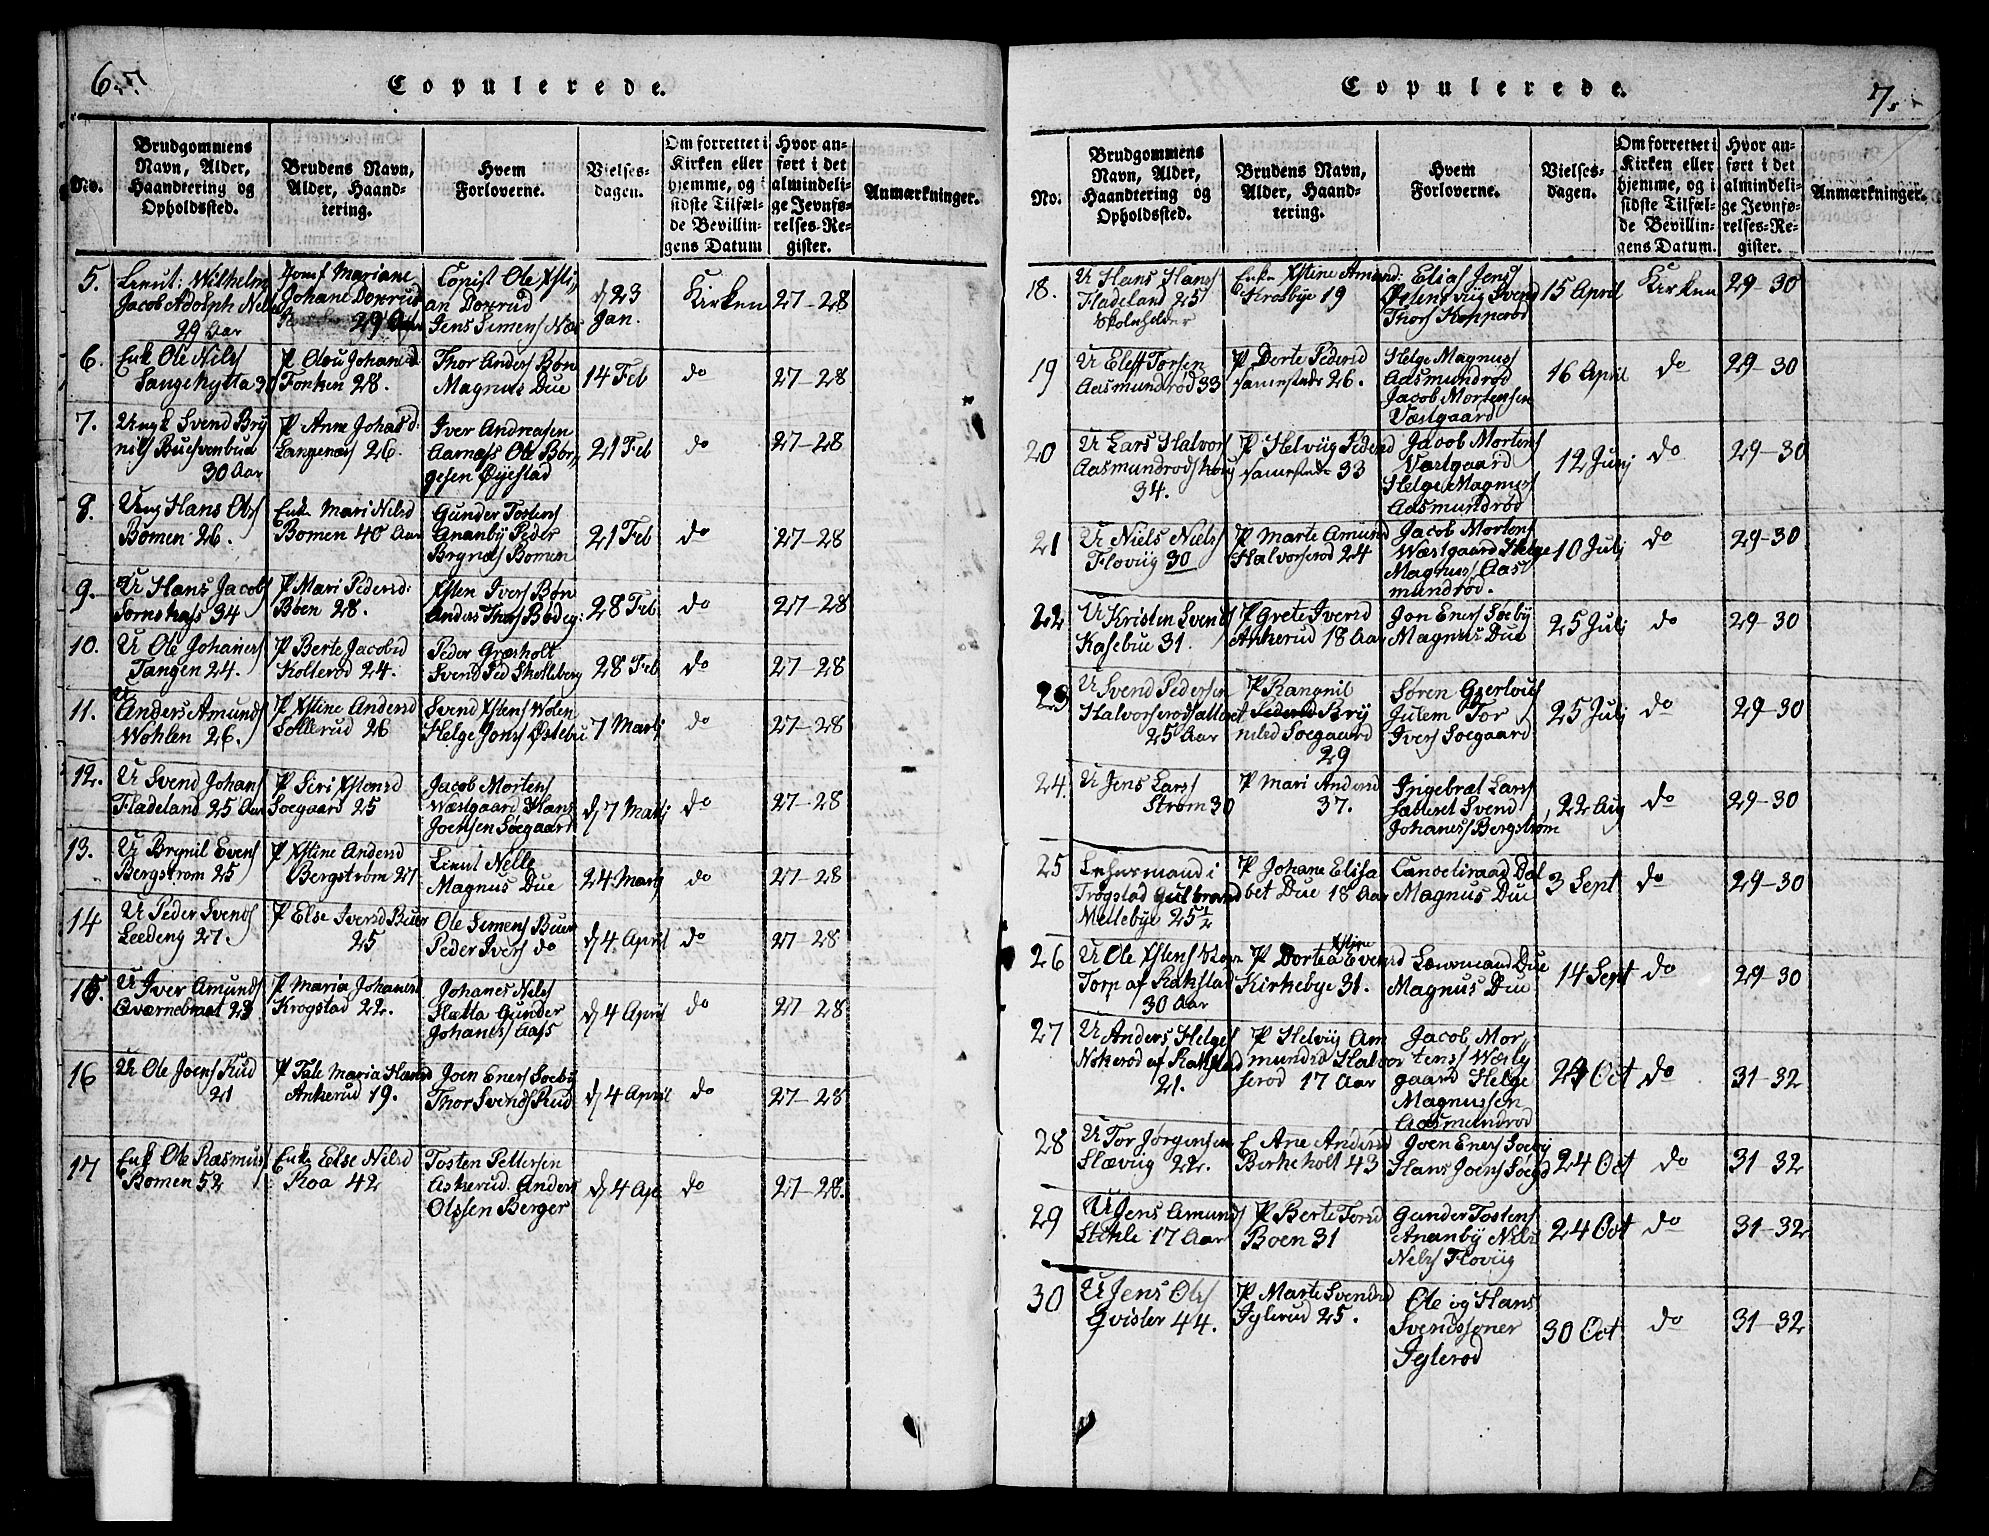 6.
Copulerede.
No.
Brudgommens Navn, Alder, Haandtering og Opholdssted.
Brudens Navn, Alder, Haandtering.
Hvem Forloverne.
Vielsesdagen.
Om forrettet i Kirken eller hjemme, og i sidste Tilfælde Bevillingens Datum
Hvor anført i det almindelige Jevnførelses-Register.
Anmærkninger.
5. Lieut: Wilhelm Jacob Adolph 29 Aar
Jomf Mariane Johane 29 Aar
Copist Ole Xstian Jens Simens Næs
d 23 Jan.
Kirken
27-28
6. Enk Ole Nils Langehytta 30
P Olou Johansd Fonken 28.
Thor Anders Bøn Magnus Due
14 Feb
do
27-28
7. Ungk Svend Brynils 30 Aar
P Anne Johasd: Langenæs 26.
Iver Andreasen Aarnæss Ole Børgesen Øyestad
21 Feb
do
27-28
8. Ung Hans Ols Bomen 26.
Enke Mari Nilsd Bomen 40 Aar
Gunder Tostens Ananby Peder Brynels Bomen
21 Feb
do
27-28
9. U Hans Jacobs 34
P Mari Pedersd: Bøen 28.
Xsten Ivers Bøn Anders Thors Bødeg:
28 Feb
do
27-28
10. U Ole Johanes Tangen 24.
P Berte Jacobsd Kolterød 24.
Peder Græsholt Svend Ped Skolleberg
28 Feb
do
27-28
11. U Anders Amunds Wohlen 26.
P Xstine Andersd Sollerud 26
Svend Xstens Wolen Helge Jons Østebu
7 Martj
do
27-28
12. U Svend Johans Fladeland 25 Aar
P Siri Xstensd Soegaard 25
Jacob Mortens Wæstgaard Hans Joensen Soegaard
d 7 Martj
do
27-28
13. U Brynil Evens Bergstrøm 25
P Xstine Andersd Bergstrøm 27
Lieut Nelle Magnus Due
24 Martj
do
27-28
14 U Peder Svends Leedeng 27.
P Else Iversd Buer 25
Ole Simens Buer Peder Ivers do
d 4 April
do
27-28
15. U Iver Amunds Qværnebraat
P Maria Johanesd Krogstad 22.
Johanes Nils Slætta Gunder Johanes Aass
d 4 April
do
27-28
16 U Ole Joens Rud 21
P Tale Maria Hansd Ankerud 19.
Joen Eners Soeby Thor Svends Rud
d 4 April
do
27-28
17 Enk Ole Rasmus Bomen 52
Enke Else Nilsd Roa 42
Tosten Pettersen Askerud. Anders Olssen Berger
d 4 Apr
do
27-28.
7.
Copulerede.
No.
Brudgommens Navn, Alder, Haandtering og Opholdssted.
Brudens Navn, Alder, Haandtering.
Hvem Forloverne.
Vielsesdagen.
Om forrettet i Kirken eller hjemme, og i sidste Tilfælde Bevillingens Datum.
Hvor anført i det almindelige Jevnførelses-Register.
Anmærkninger.
18. U Hans Hans Fladeland 25 Skoleholder
Enke Xstine Amund: Krosbye 19
Elias Jens Svend Thors Kopperød
15 April
Kirken
29-30
19 U Eleff Torsen Aasmundrød 33
P Dorte Pedersd samestede 26.
Helge Magnuss Aasmundrød Jacob Mortensen Væstgaard
16 April
do
29-30
20 U Lars Halvors Aasmundrød 34.
P Helviig Pedersd samestede 33
Jacob Mortens Væstgaard Helge Magnuss Aasmundrød
12 Junj
do
29-30
21 U Niels Niels Floviig 30
P Marte Amund Halvorserød 24
Jacob Mortens Wæstgaard Helge Magnuss Aasmundrød.
10 Julj
do
29-30
22 U Kristen Svends Kasebue 31.
P Grete Iversd Ankerud 18 Aar
Jon Eners Soeby Magnus Due
25 Julj
do
29-30
23 U Svend Pedersen Halvorserød 25 Aar
P Rangnil Brynilsd Soegaard 29
Søren Gjerlous Julem Tor Ivers Soegaard
25 Julj
do
29-30
24. U Jens Lars Strøm 30
P Mari Andersd 37.
Ingebræt Lars Sætteret Svend Johanes Bergstrøm
22 Aug
do
29-30
25 Lehnsmand i Trøgstad Gulbrand Mellebye 25½
P Johane Elisabet Due 18 Aar
Canceliraad Dal Magnus Due
3 Sept
do
29-30
26 U Ole Xstens Torp af Rakstad 30 Aar
P Dortea Xstine Eversd Kirkebye 31.
Lænsmand Due Magnus Due
14 Sept
do
29-30
27 U Anders Helges Nokerød af Rakstad 21.
P Helviig Amundsd Halvorserød 17 Aar
Jacob Mortens Wæstgaard Helge Magnussen Aasmundrød
24 Oct
do
31-32
28 U Tor Jørgensen Slæviig 22.
E Ane Andersd Birkeholt 43
Joen Eners Soeby Hans Joens Soegd
24 Oct
do
31-32
29 U Jens Amunds Stohle 17 Aar
P Berte Torsd Boen 31
Gunder Tostens Ananby Nils Nils Floviig
24 Oct
do
31-32
30 U Jens Ols Qvisler 44.
P Marte Svendsd Iglerud 25.
Ole og Hans Svendssøner Iglerød
30 Oct
do
31-32